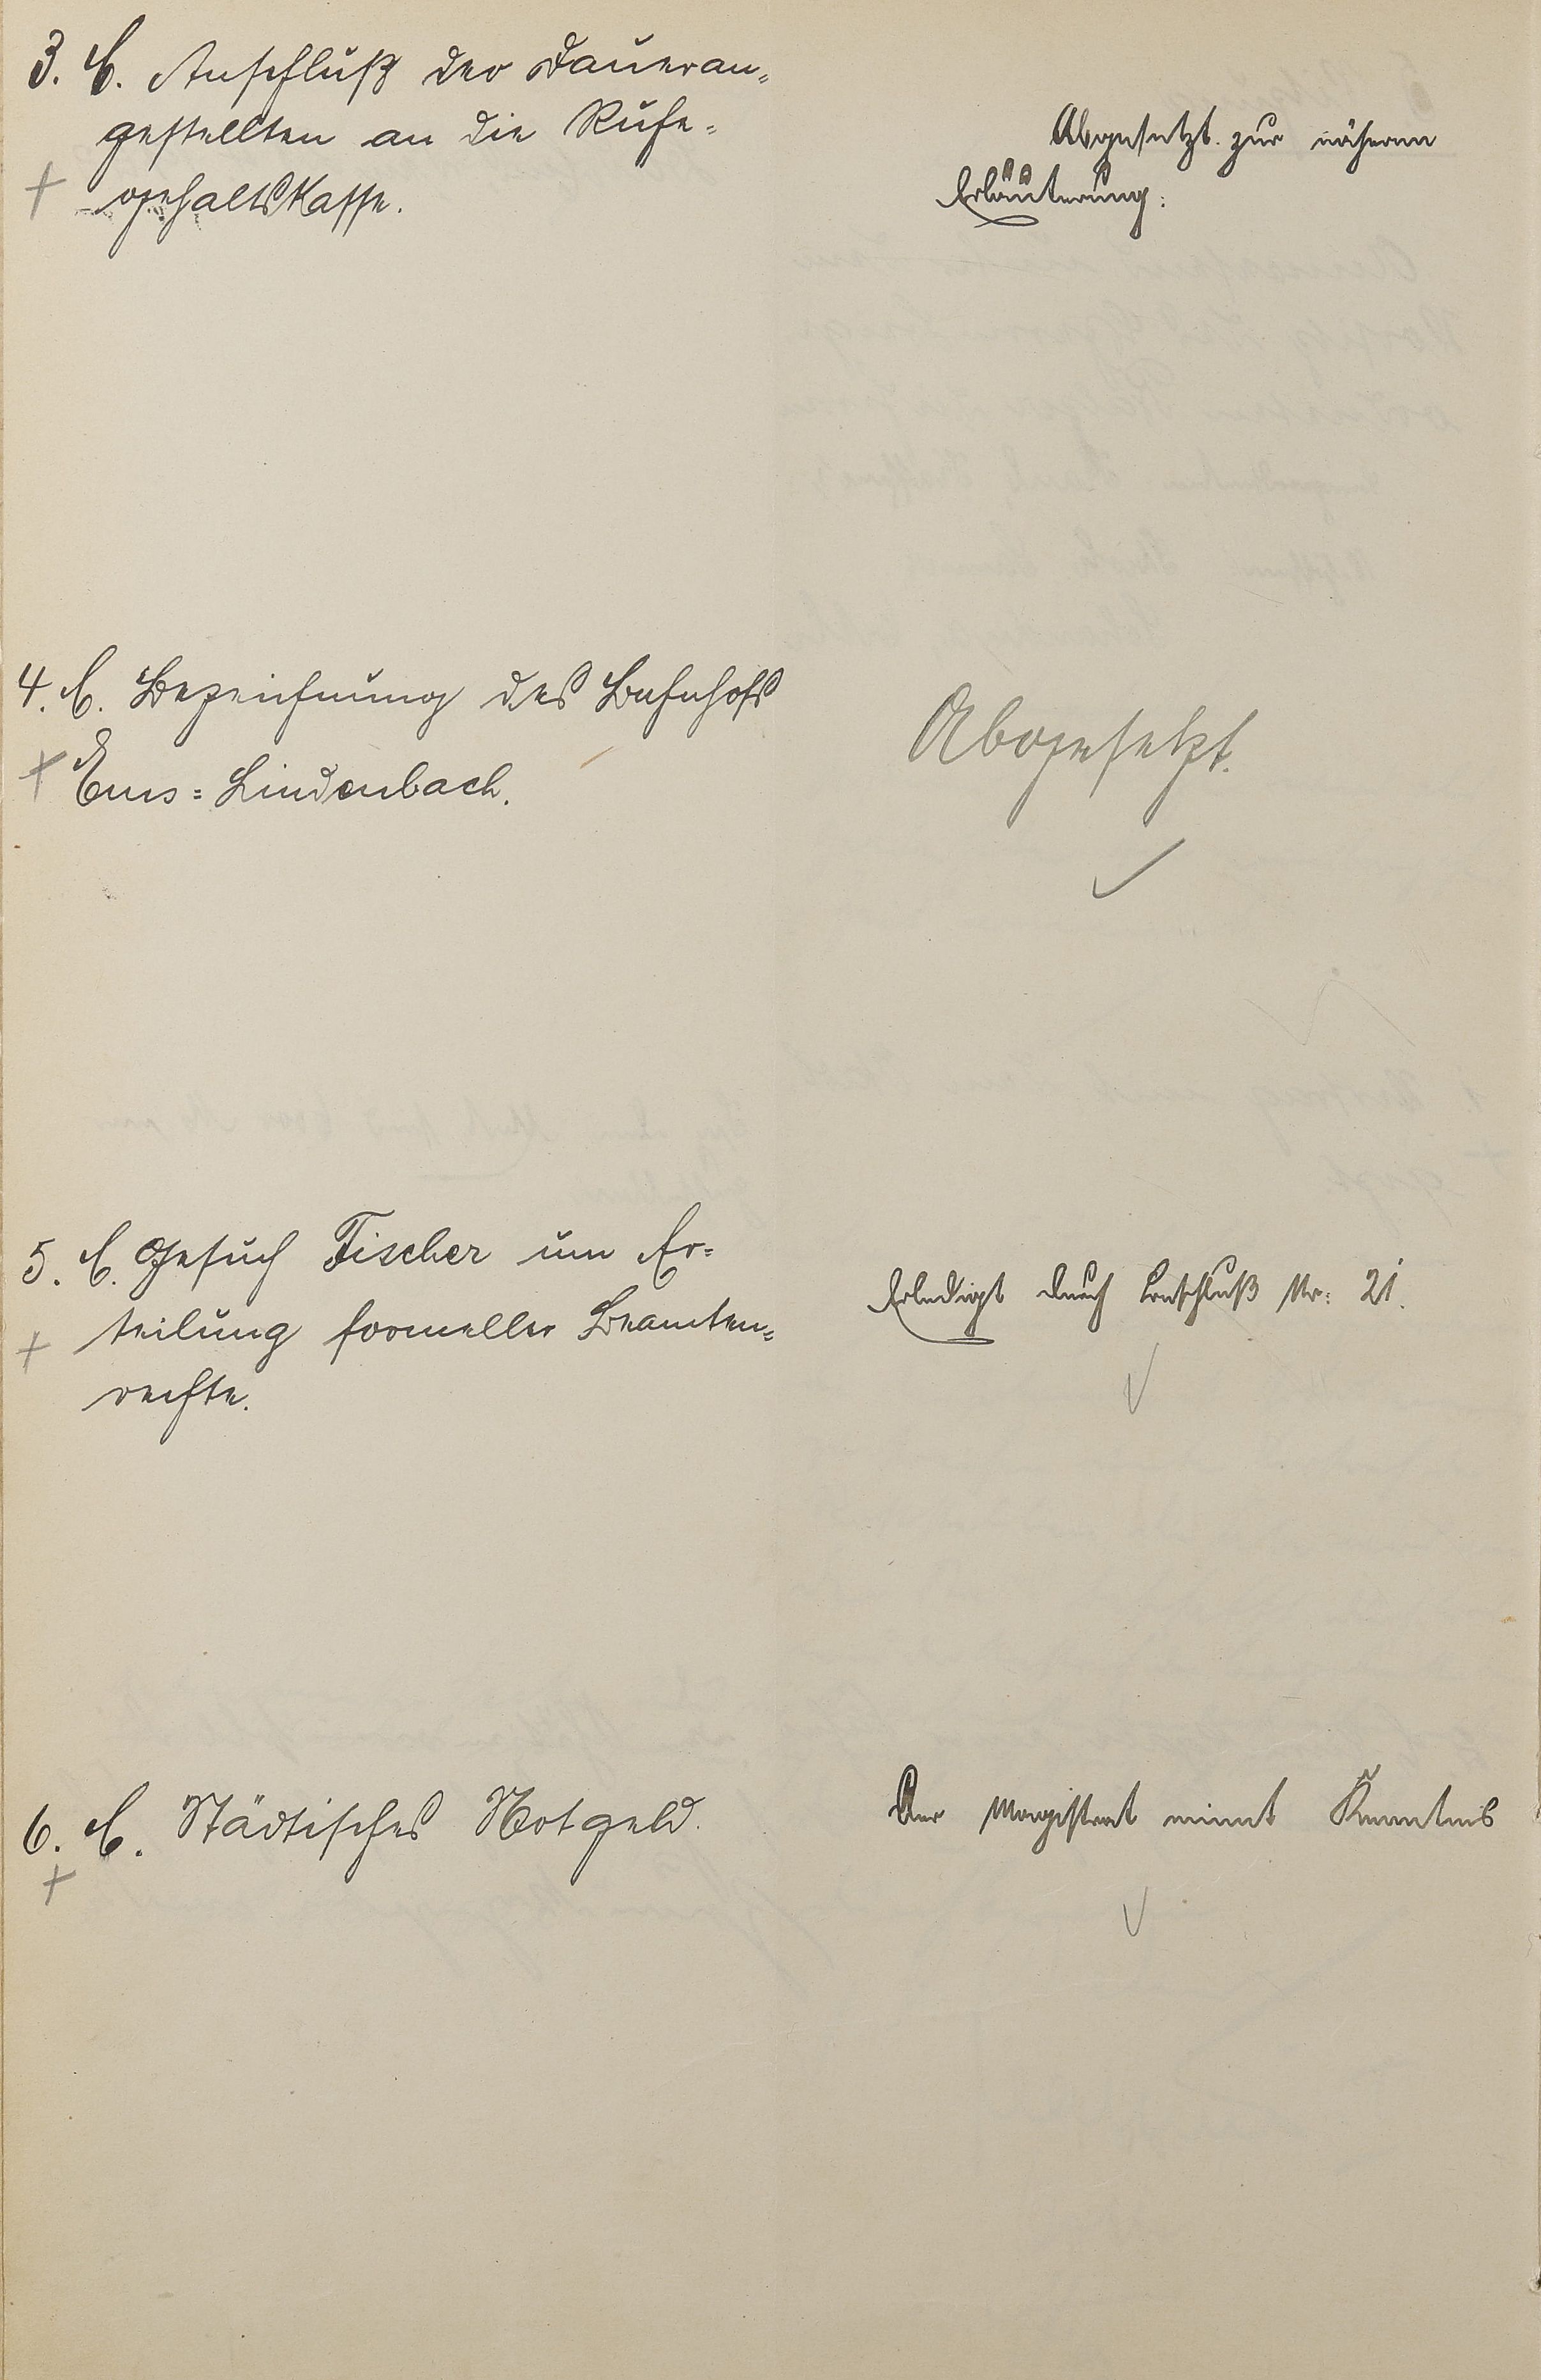 3. C. Anschluß der Daueran-
gestellten an die Ruhe-
gehaltskasse.
Abgesetzt zur näheren
Erläuterung.
4. C. Bezeichnung des Bahnhofs
Ems-Lindenbach.
Abgesetzt.
5. C. Gesuch Fischer um Er-
teilung formeller Beamten-
rechte.
Erledigt durch Beschluß Nr. 21.
6. C. Städtisches Notgeld.
Der Magistrat nimmt Kenntnis